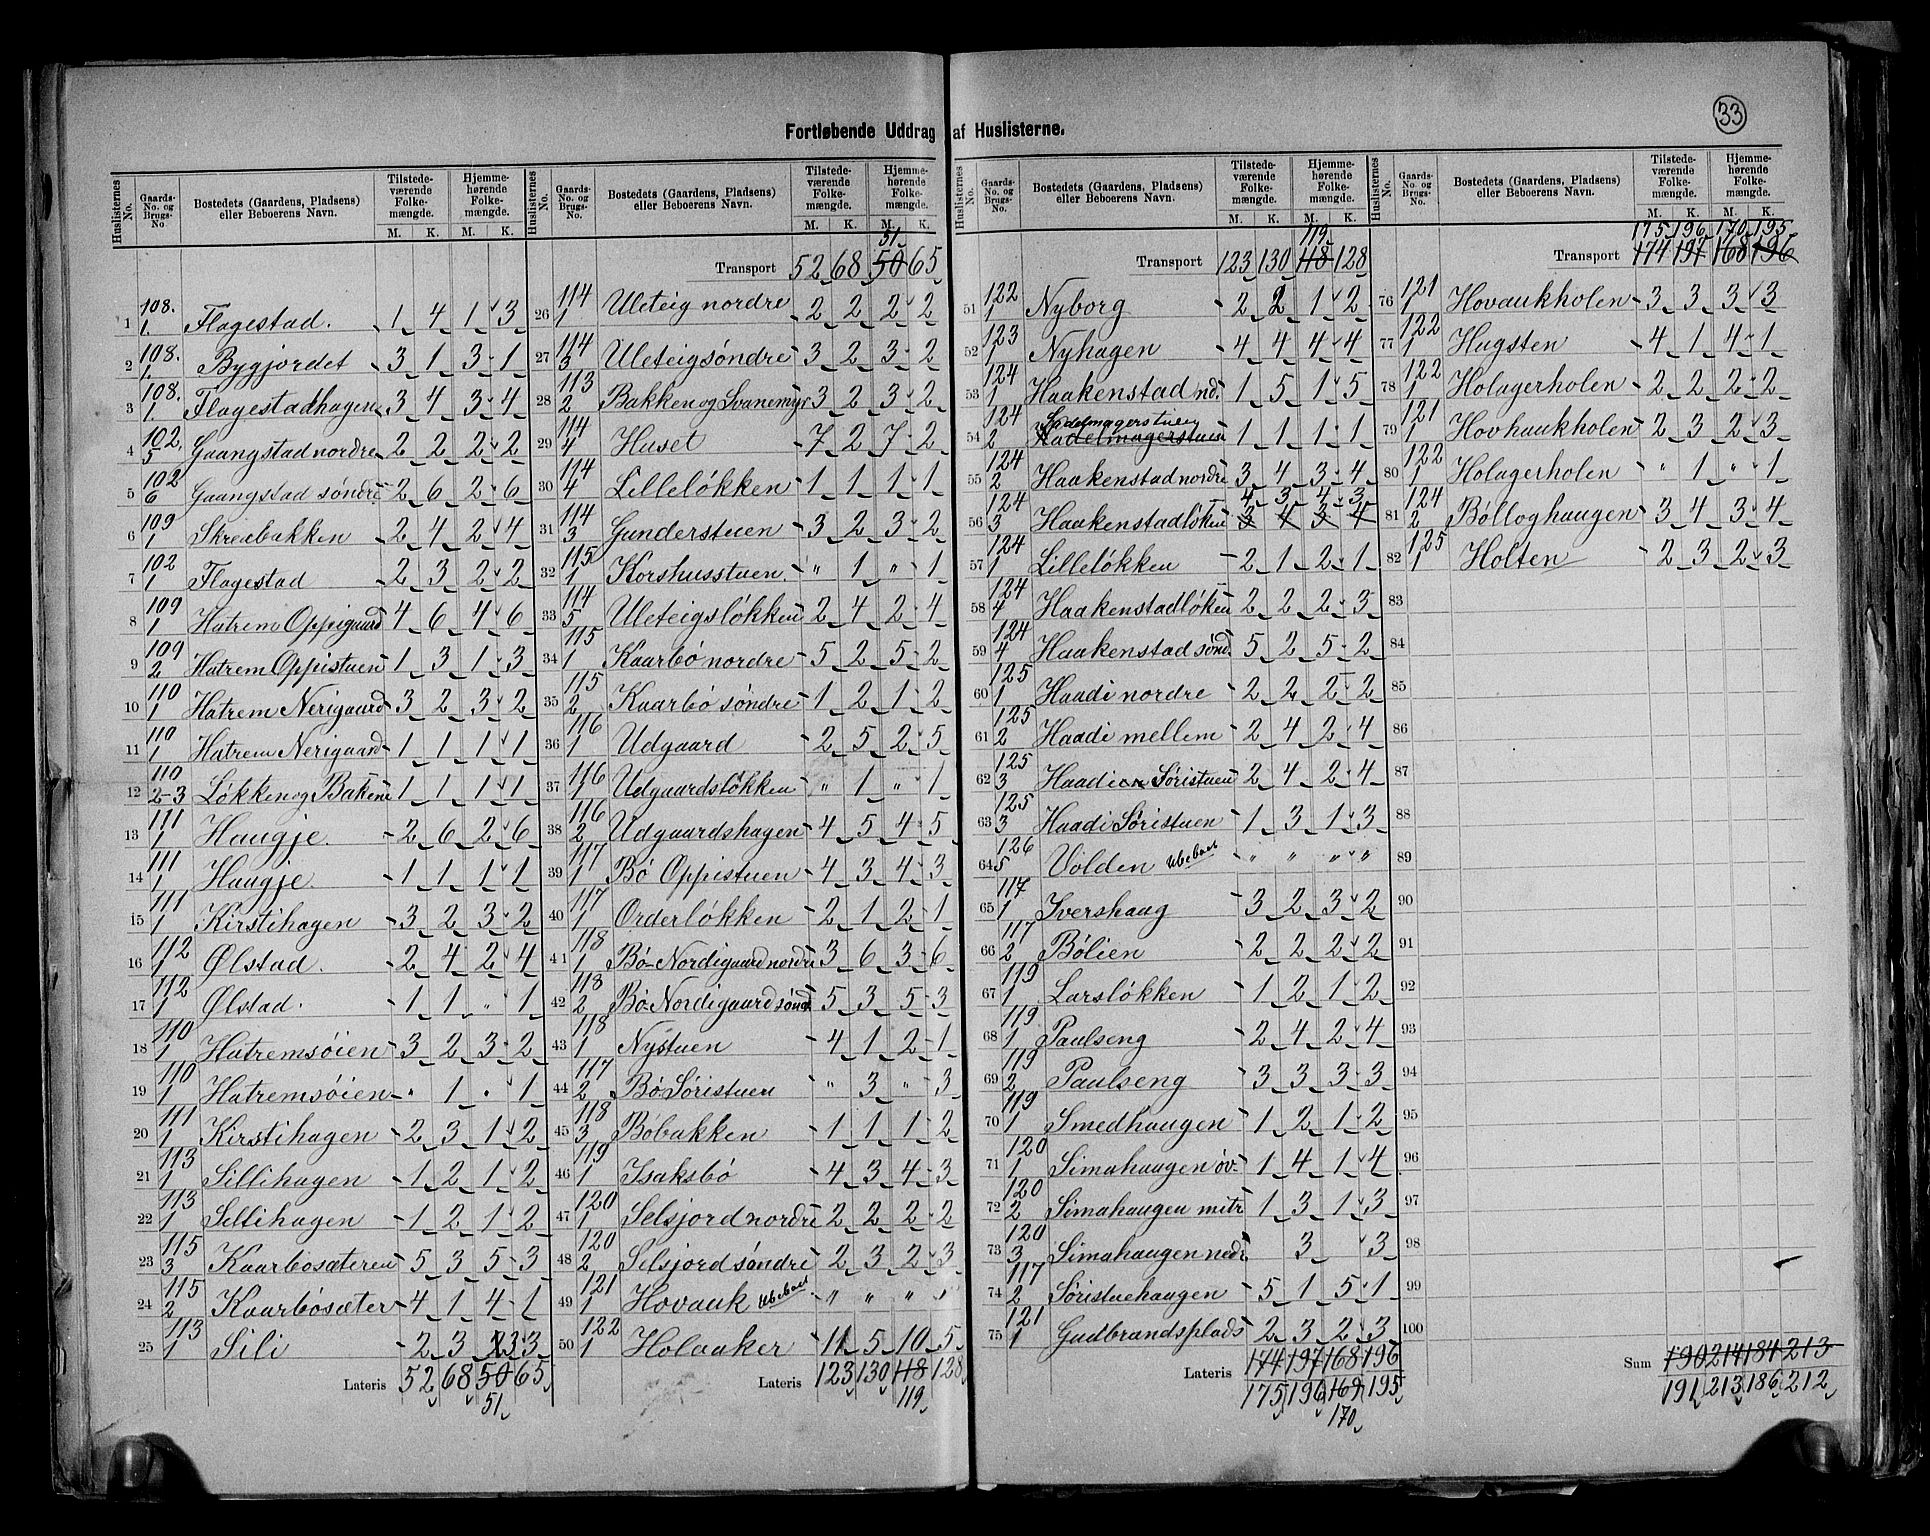 33
Fortløbende Uddrag af Huslisterne.
Huslisternes No. | Gaards-No. og Brugs-No. | Bostedets (Gaardens, Pladsens) eller Beboerens Navn. | Tilstedeværende Folkemængde. M. K. | Hjemmehørende Folkemængde. M. K.
1 108. 1. Flagestad. 1 4 1 3
2 108. 1. Bygjordet 3 1 3 1
3 108. 1. Flagestadhagen 3 4 3 4
4 102. 5 Gaangstad nordre 2 2 2 2
5 102 6 Gaangstad søndre 2 6 2 6
6 109 1 Skredbakken 2 4 2 4
7 102 1 Flagestad 2 3 2 2
8 109 1 Hatrem Oppigaard 4 6 4 6
9 109 2 Hatrem Oppistuen 1 3 1 3
10 110 1 Hatrem Nerigaard 3 2 3 2
11 110 1 Hatrem Nerigaard 1 1 1 1
12 110 2-3 Løkken og Bakken 1 1 1 1
13 111 1 Haugje. 2 6 2 6
14 111 1 Haugje. 1 1 1 1
15 111 1 Kirstihagen 3 2 3 2
16 112 1 Ølstad. 2 4 2 4
17 112 1 Ølstad. 1 1 " 1
18 110 1 Hatremsøien 3 2 3 2
19 110 1 Hatremsøien " 1 " 1
20 111 1 Kirstihagen 2 3 1 2
21 113 1 Sillihagen 1 2 1 2
22 113 1 Sillihagen 1 2 1 2
23 115 3 Kaarbøsæteren 5 3 5 3
24 115 2 Kaarbøsæter 4 1 4 1
25 113 1 Sili 2 3 3 3
Lateris 52 68 50 65
51
51
Transport 52 68 50 65
26 114 1 Uleteig nordre 2 2 2 2
27 114 3 Uleteig søndre 3 2 3 2
28 113 2 Bakken og Svanemyr 3 2 3 2
29 114 4 Huset 7 2 7 2
30 114 4 Lilleløkken 1 1 1 1
31 114 3 Gunderstuen 3 2 3 2
32 115 1 Korshusstuen " 1 " 1
33 114 5 Uleteigsløkken 2 4 2 4
34 115 1 Kaarbø nordre 5 2 5 2
35 115 2 Kaarbø søndre 1 2 1 2
36 116 1 Udgaard 2 5 2 5
37 116 1 Udgaardsløkken " 1 " 1
38 116 2 Udgaardshagen 4 5 4 5
39 117 1 Bø Oppistuen 4 3 4 3
40 117 1 Orderløkken 2 1 2 1
41 118 1 Bø-Nordigaard nordre 3 6 3 6
42 118 2 Bø-Nordigaard sønd 5 3 5 3
43 118 1 Nystuen 4 1 2 1
44 117 2 Bø-Søristuen " 3 " 3
45 118 3 Bøbakken 1 1 1 2
46 119 1 Isaksbø 4 3 4 3
47 120 1 Selsjord nordre 2 2 2 2
48 120 2 Selsjord søndre 2 3 2 3
49 121 1 Hovauk Ubeboet " " " "
50 122 1 Holaaker 11 5 10 5
Lateris 123 130 118 128
119
119
Transport 123 130 118 128
51 122 1 Nyborg 2 2 1 2
52 123 1 Nyhagen 4 4 4 4
53 124 1 Haakenstad nd. 1 5 1 5
Sadelmagerstuen
54 124 2 Sadelmagerstuen 1 1 1 1
55 124 2 Haakenstad nordre 3 4 3 4
4 3 4 3
56 124 3 Haakenstadløken 3 4 3 4
57 124 1 Lilleløkken 2 1 2 1
58 124 4 Haakenstadløken 2 2 2 3
59 124 4 Haakenstad sønd. 5 2 5 2
60 125 1 Haadi nordre 2 2 2 2
61 125 2 Haadi mellem 2 4 2 4
62 125 3 Haadi Søristuen 2 4 2 4
63 125 3 Haadi Søristuen 1 3 1 3
64 126 5 Volden Ubeboet " " " "
65 117 1 Ivershaug 3 2 3 2
66 117 2 Bølien 2 2 2 2
67 119 1 Larsløkken 1 2 1 2
68 119 1 Paulseng 2 4 2 4
69 119 2 Paulseng 3 3 3 3
70 119 1 Smedhaugen 1 2 1 2
71 120 1 Simahaugen øv. 1 4 1 4
72 120 2 Simahaugen mitr 1 3 1 3
73 120 3 Simahaugen nedr 3 3
74 117 2 Søristuehaugen 5 1 5 1
75 121 1 Gudbrandsplads 2 3 2 3
Lateris 174 197 168 196
175 196 169 195
170
175 196 170 195
Transport 174 197 168 196
76 121 1 Hovaukholen 3 3 3 3
77 122 1 Hugsten 4 1 4 1
78 122 1 Holagerholen 2 2 2 2
79 121 1 Hovhaukholen 2 3 2 3
80 122 1 Holagerholen " 1 " 1
81 124 2 Bølloghaugen 3 4 3 4
82 125 1 Holten 2 3 2 3
83
84
85
86
87
88
89
90
91
92
93
94
95
96
97
98
99
100
Sum 190 214 184 213
191 213 186 212